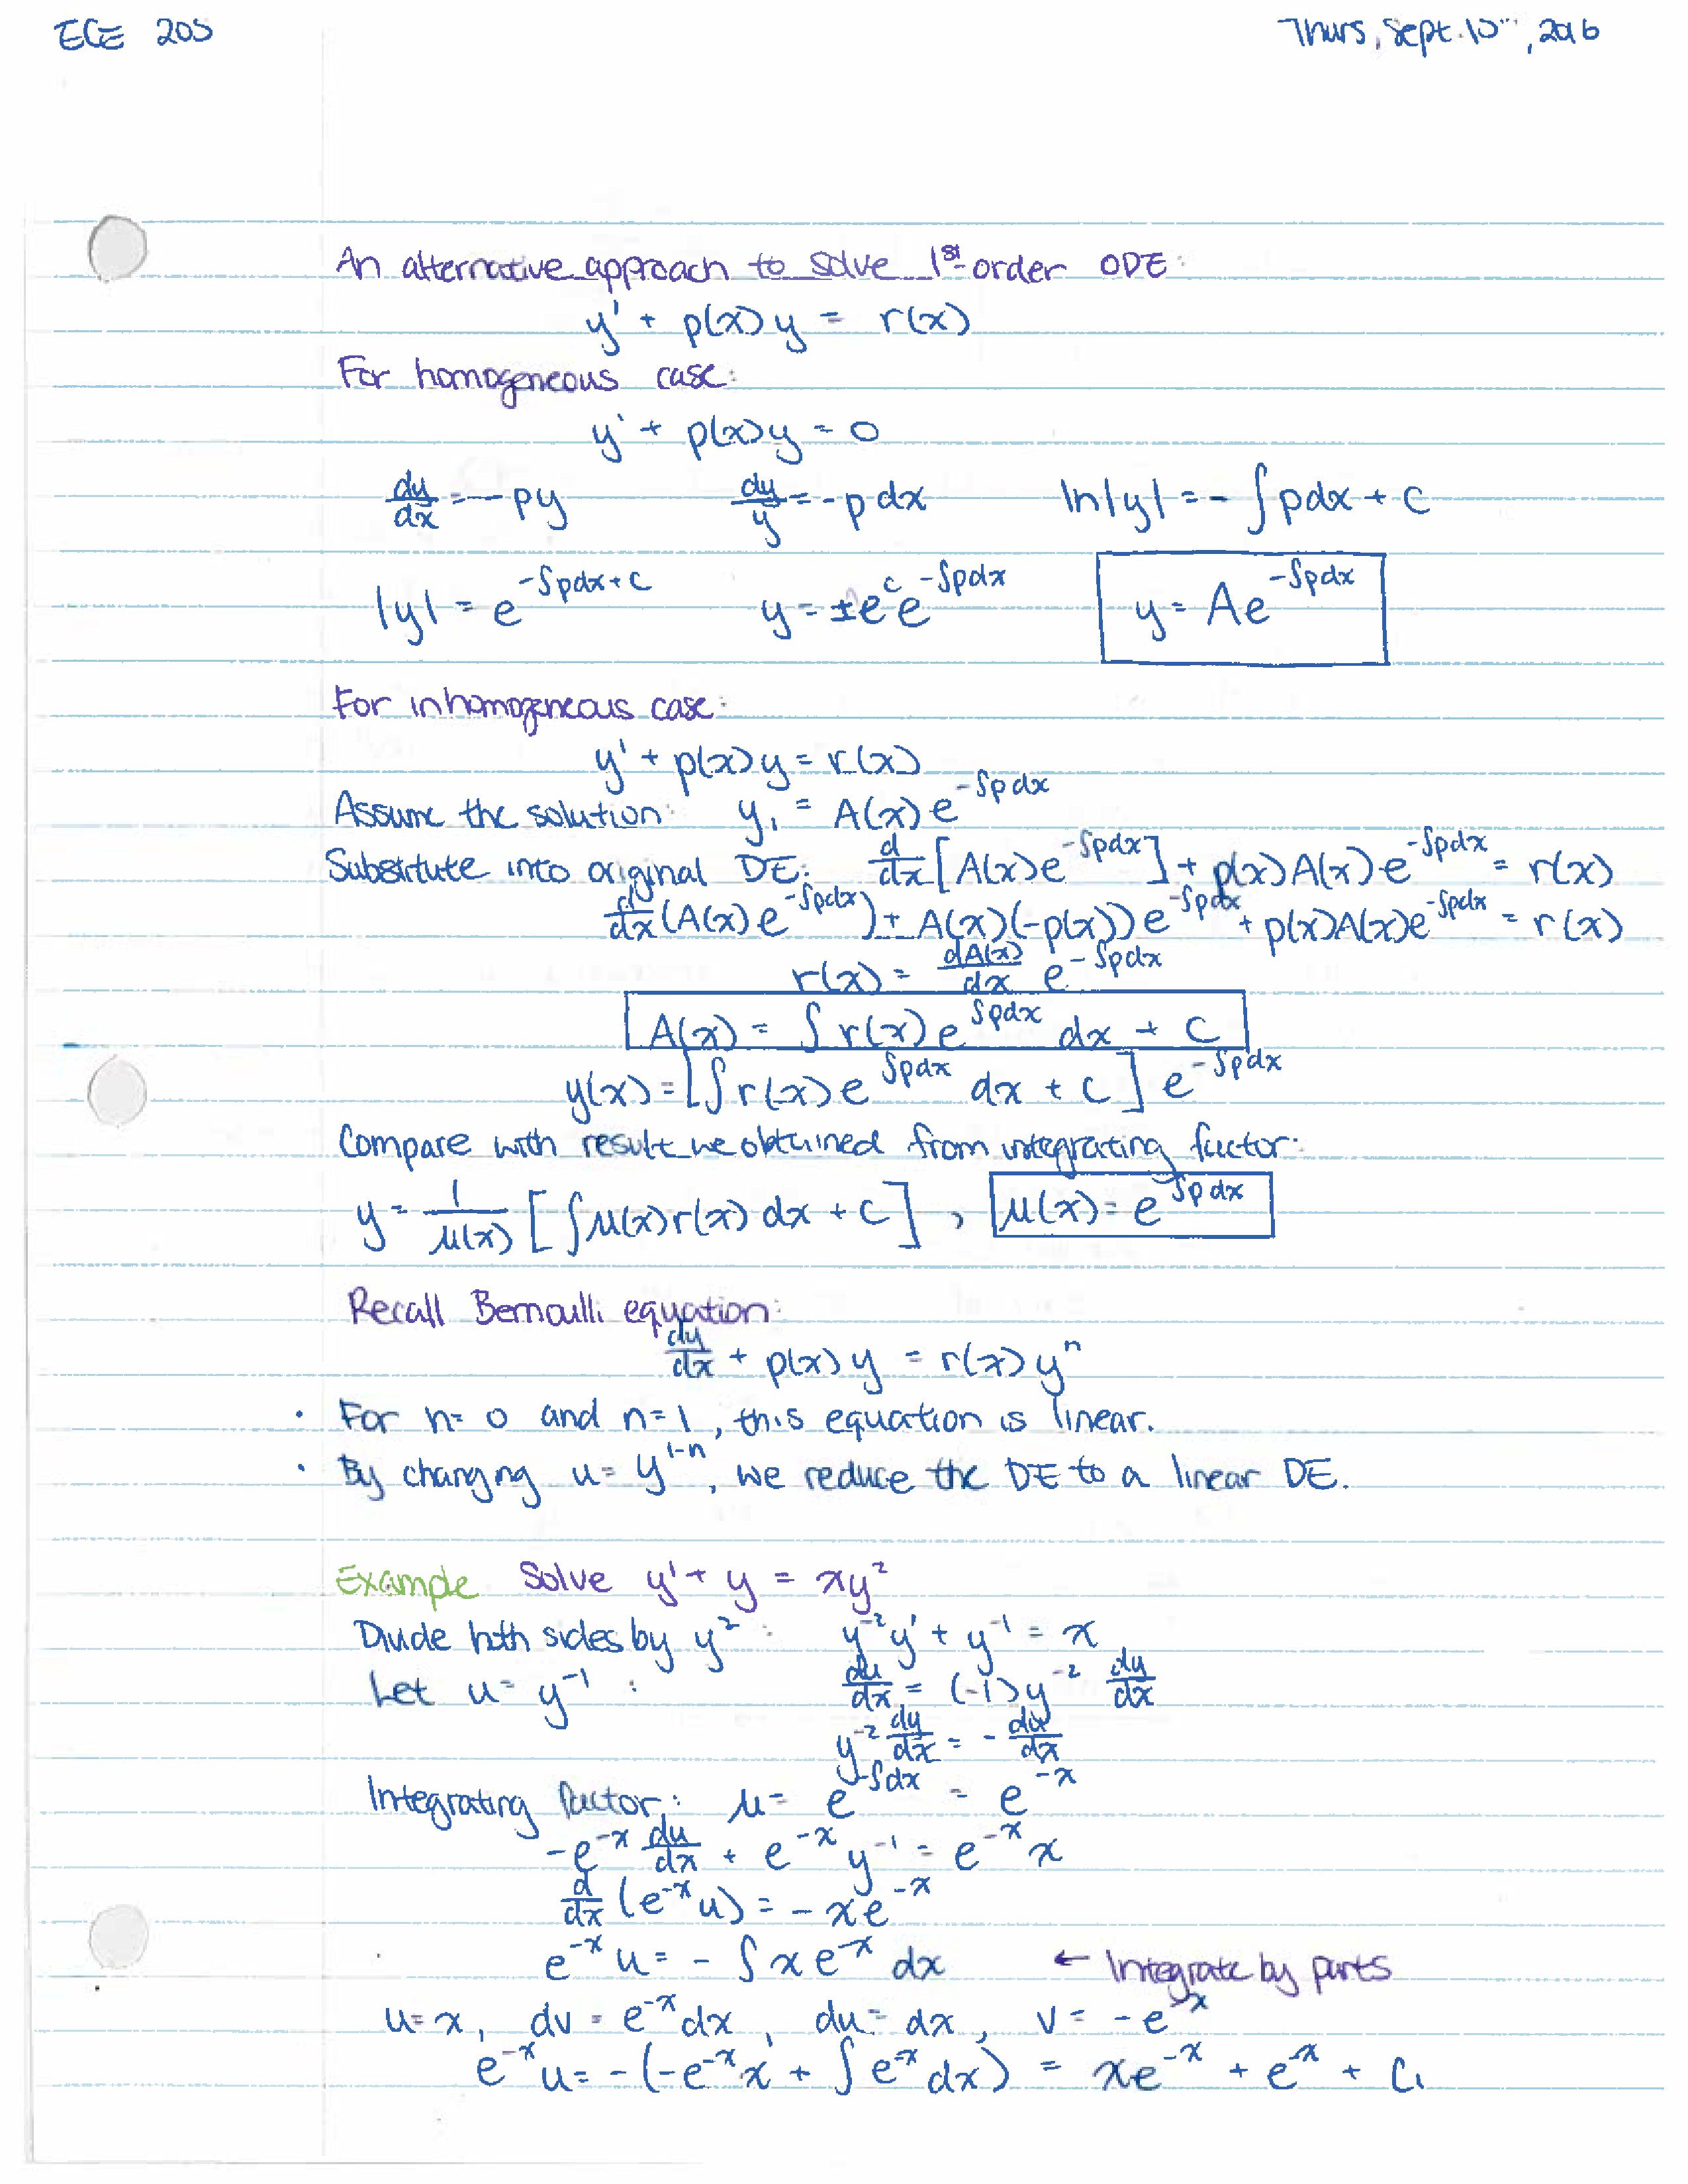 ECE 205 Thurs, Sept. 15th, 2016
An alternative approach to solve 1st order ODE:
y' + p(x)y = r(x)
For homogeneous case:
y' + p(x)y = 0
dy/dx = -py dy/y = -p dx ln|y| = - ∫pdx + C
|y| = e^(-∫pdx+C) y = ±e^c e^(-∫pdx) y = Ae^(-∫pdx)
For inhomogeneous case:
y' + p(x)y = r(x)
Assume the solution: y₁ = A(x)e^(-∫pdx)
Substitute into original DE: d/dx[A(x)e^(-∫pdx)] + p(x)A(x)e^(-∫pdx) = r(x)
d/dx(A(x)e^(-∫pdx)) + A(x)(-p(x))e^(-∫pdx) + p(x)A(x)e^(-∫pdx) = r(x)
r(x) = dA(x)/dx e^(-∫pdx)
A(x) = ∫r(x)e^(∫pdx) dx + C
y(x) = [∫r(x)e^(∫pdx) dx + C] e^(-∫pdx)
Compare with result we obtained from integrating factor:
y = 1/μ(x) [∫μ(x)r(x)dx + C] , μ(x) = e^(∫pdx)
Recall Bernoulli equation:
dy/dx + p(x)y = r(x)yⁿ
· For n=0 and n=1, this equation is linear.
· By changing u = y^(1-n), we reduce the DE to a linear DE.
Example Solve y' + y = xy²
Divide both sides by y²: y⁻²y' + y⁻¹ = x
Let u = y⁻¹ : du/dx = (-1)y⁻² dy/dx
y⁻² dy/dx = - du/dx
Integrating factor: μ = e^(-∫dx) = e^(-x)
-e^(-x) du/dx + e^(-x) y⁻¹ = e^(-x) x
d/dx(e^(-x)u) = -xe^(-x)
e^(-x)u = - ∫xe^(-x) dx ← Integrate by parts
u=x, dv = e^(-x)dx, du = dx, v = -e^(-x)
e^(-x)u = -(-e^(-x)x + ∫e^(-x)dx) = xe^(-x) + e^(-x) + C₁